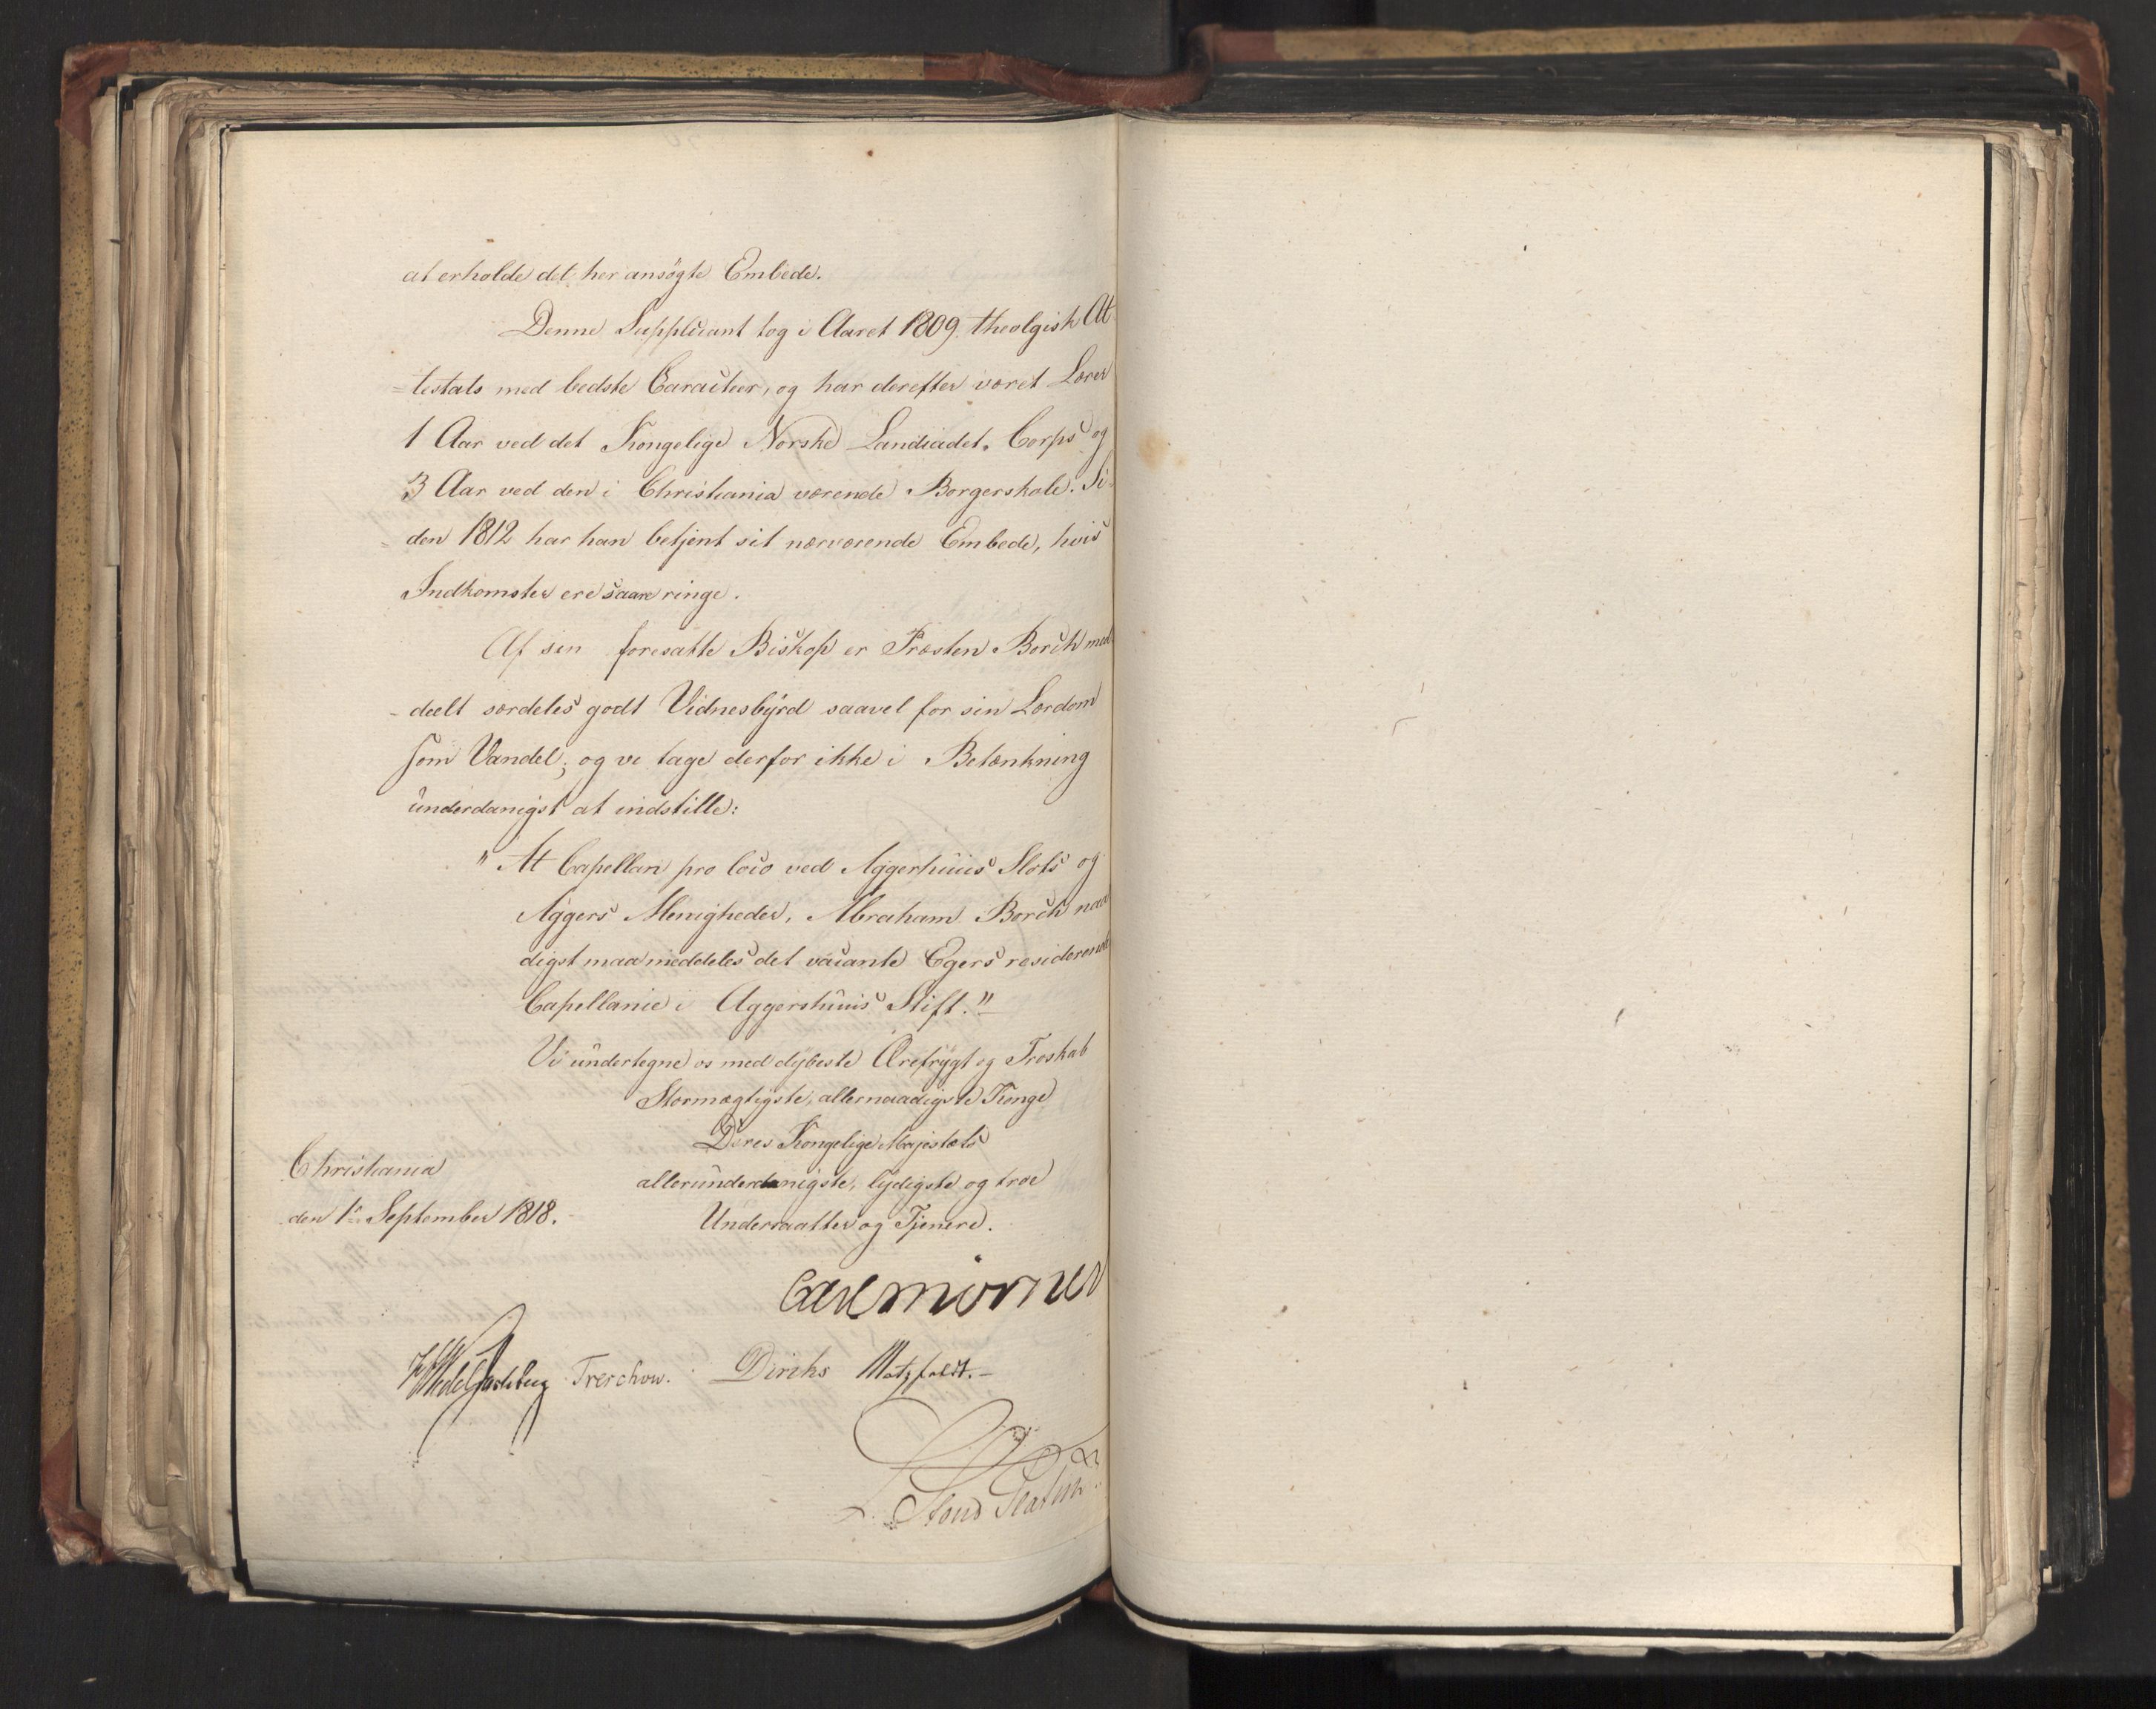 at erholde det her ansøgte Embede.
Denne Supplicant tog i Aaret 1809 theolgisk At
=testats med bedste Caracteer, og har derefter været Lærer
1 Aar ved det Kongelige Norske Landcadet-Corps og
3 Aar ved den i Christiania værende Borgerskole. Si=
=den 1812 har han betjent sit nærværende Embede, hvis
Indkomster ere saare ringe.
Af sin foresatte Biskop er Præsten Borch med
-deelt særdeles godt Vidnesbyrd saavel for sin Lærdom
som Vandel; og vi tage derfor ikke i Betænkning
underdanigst at indstille:
"At Capellan pro loco ved Aggerhuus Slots og
Aggers Menigheder, Abraham Borch naa
digst maa meddeles det vacante Egers residerende
Capellanie i Aggershuus Stift."
Vi undertegne os med dybeste Ærefrygt og Troskab
Stormægtigste, allernaadigste Konge
Deres Kongelige Majestæts
allerunderdanigste, lydigste og troe
Undersaatter og Tjenere.
Christiania
den 1ste September 1818.
Carl Mörner
Wedel Jarlsberg Treschow. Diriks Motzfeldt.